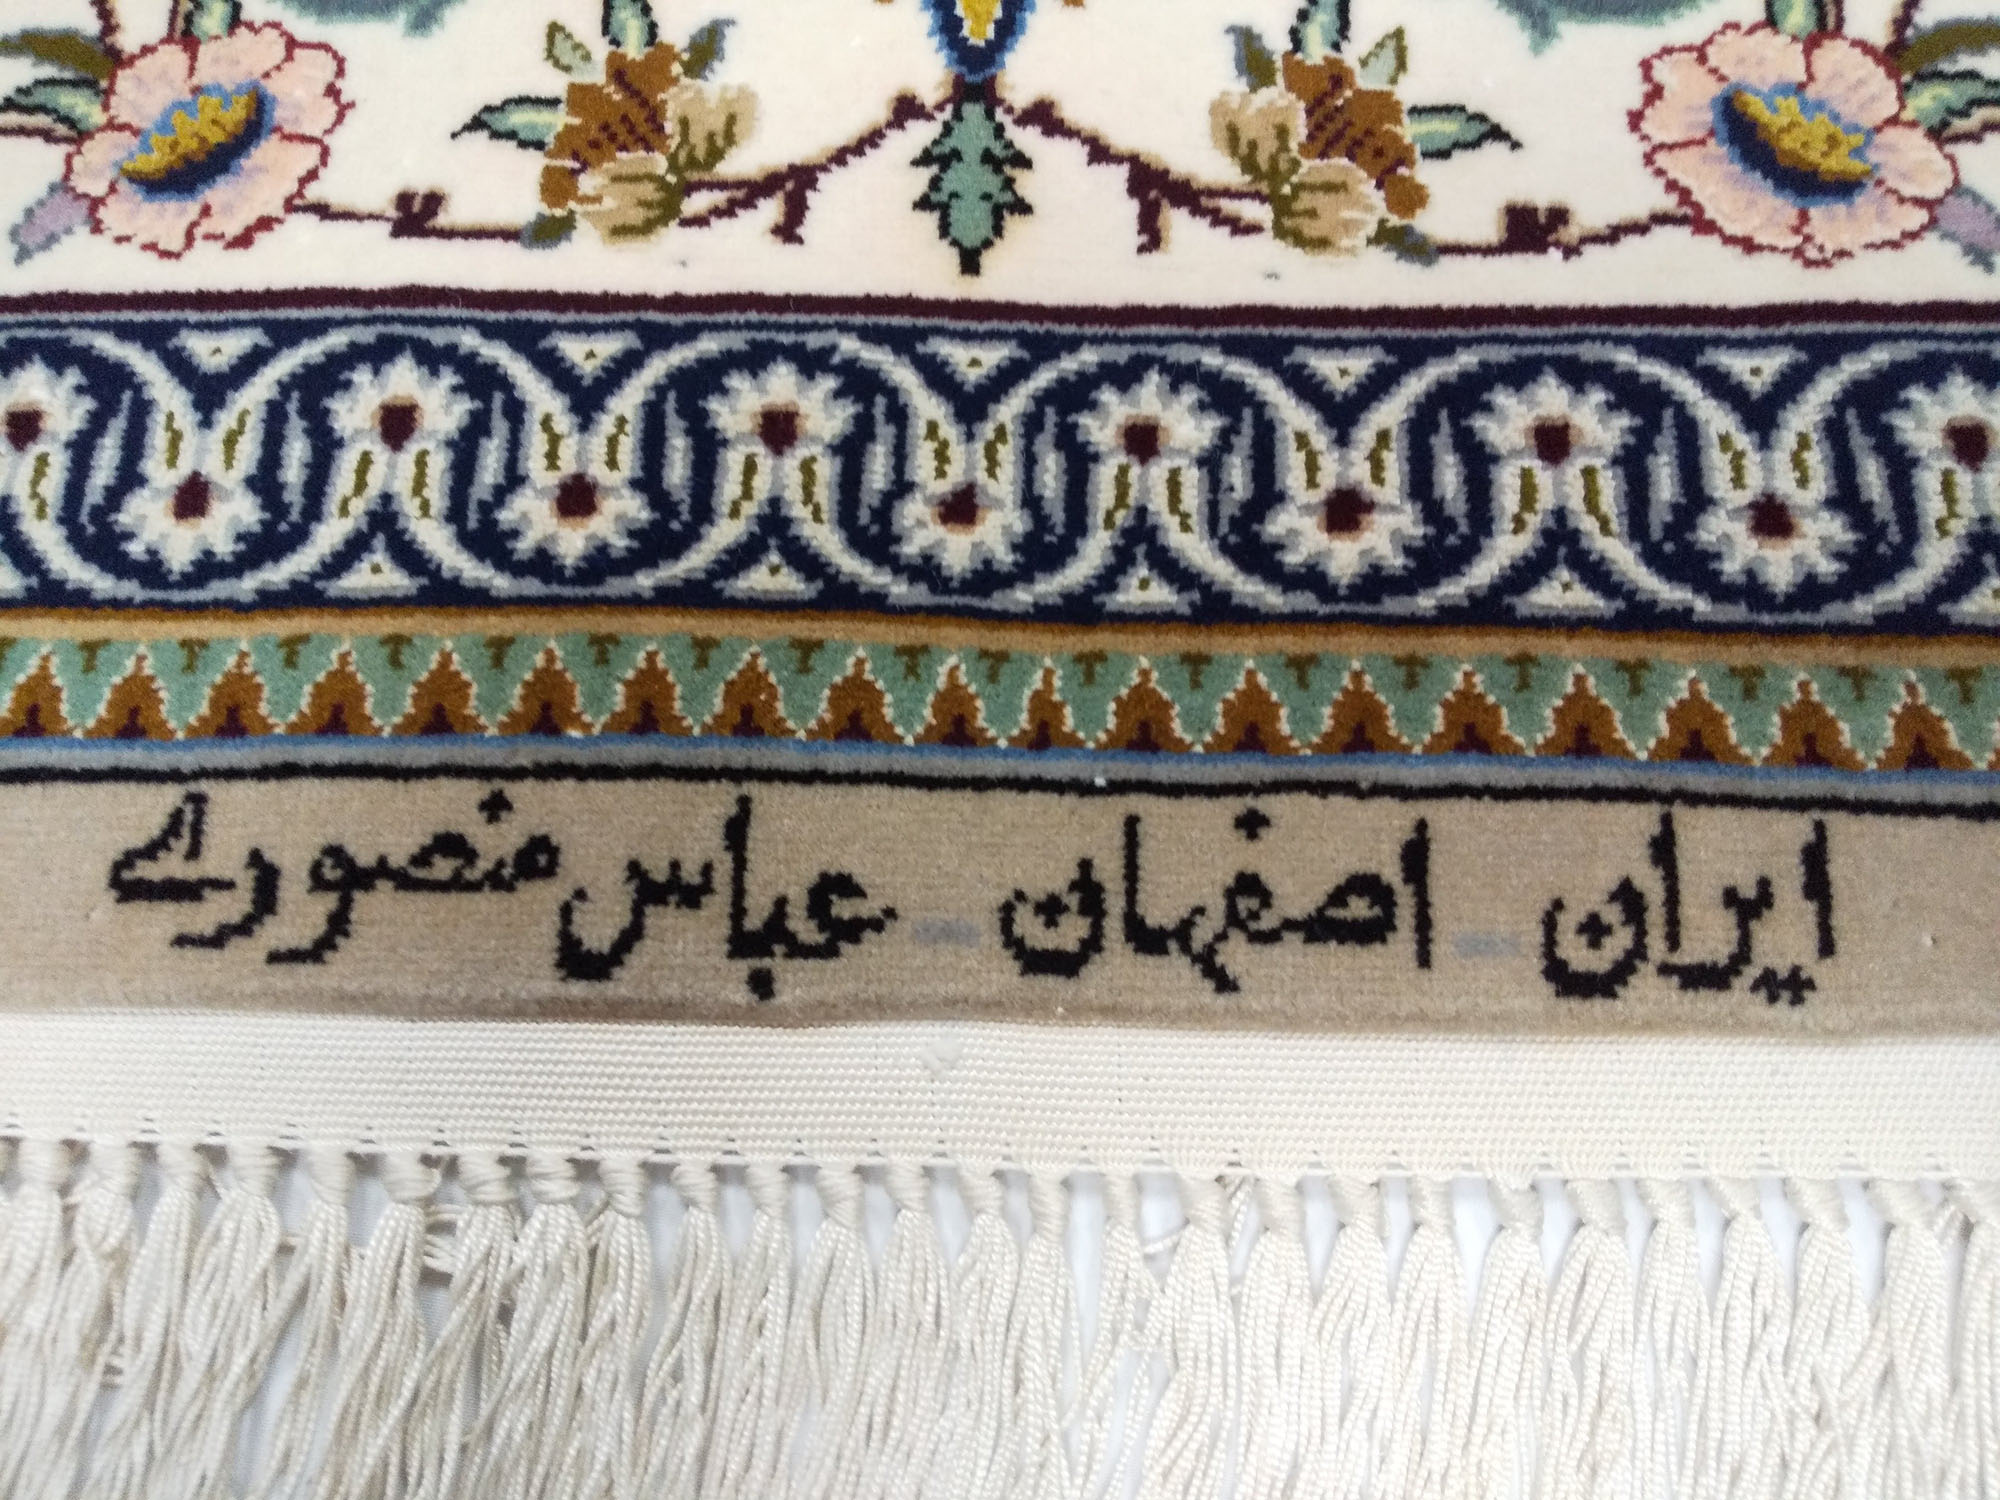 ایران - اصفهان - عباس منصوری